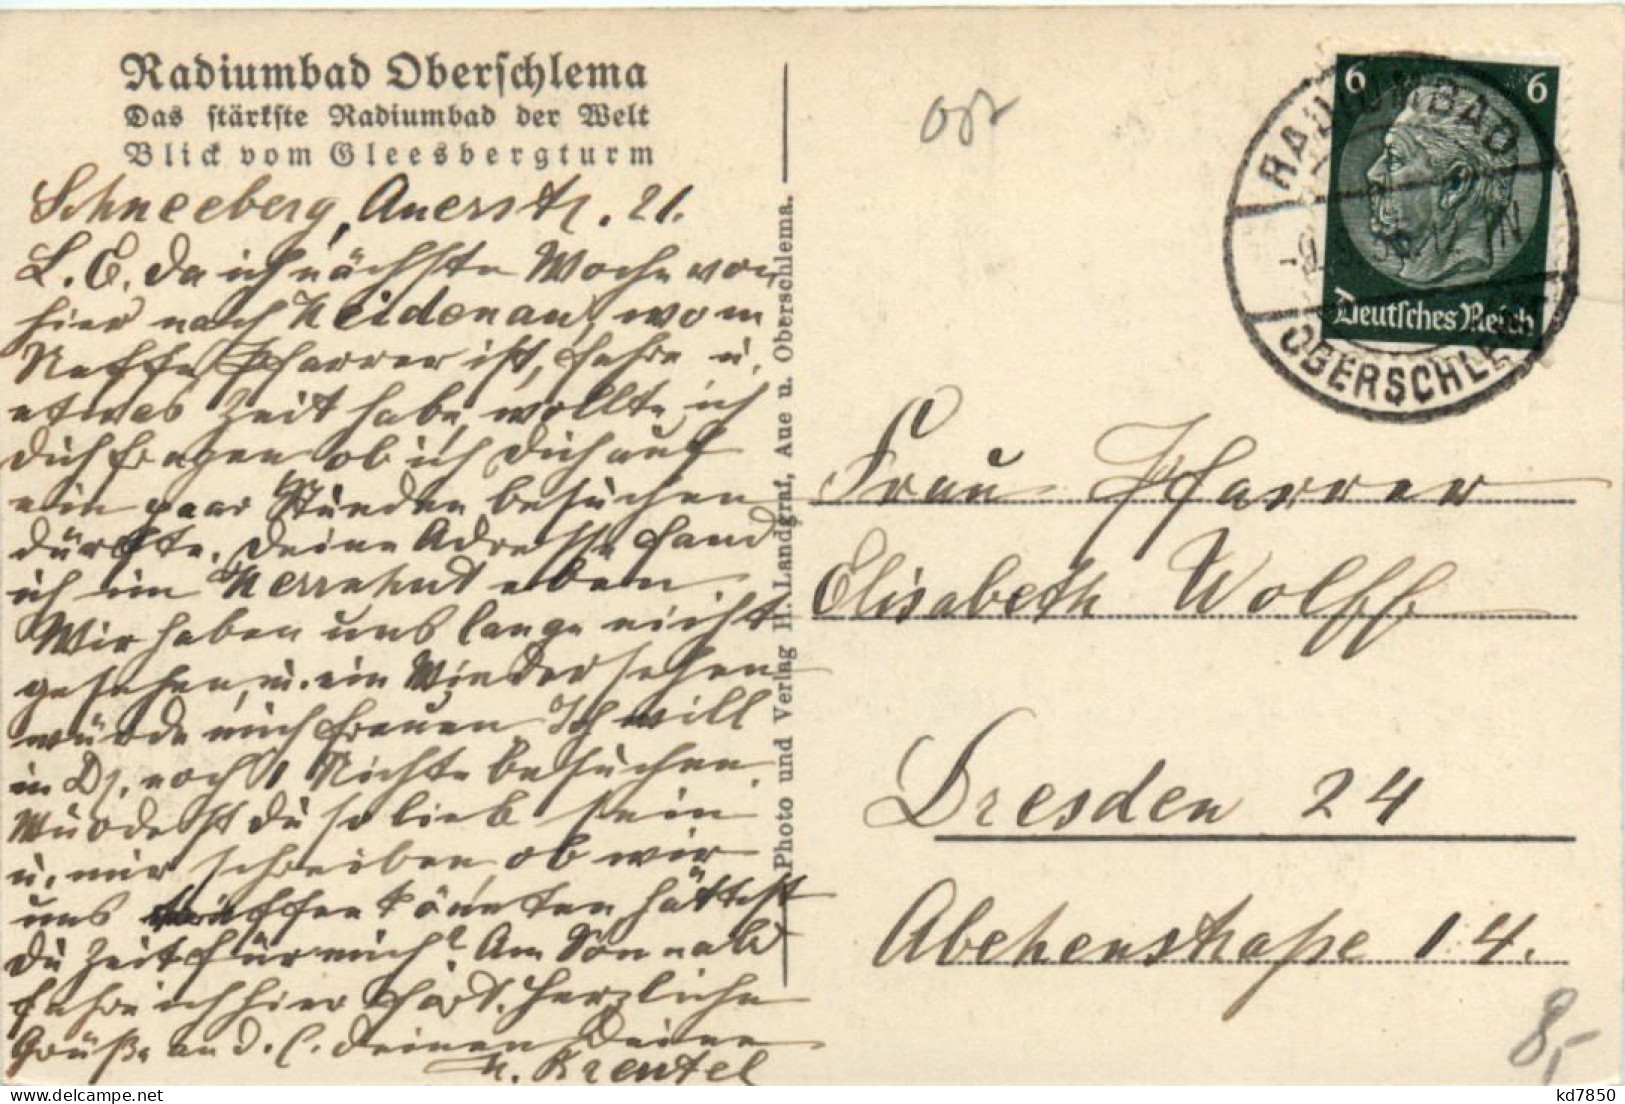 Radiumbad Oberschlema
Das stärkste Radiumbad der Welt
Blick vom Gleesbergturm
Schneeberg, Auerstr. 21.
L. E. Da ich nächste Woche von
hier nach Heidenau, wo m
Neffe Pfarrer ist, fahre u.
etwas Zeit habe, wollte ich
Dich fragen ob ich Dich auf
ein paar Stunden besuchen
dürfte. Deine Adresse fand
ich im Herrnhut eben
Wir haben uns lange nicht
gesehen, u. ein Wiedersehen
würde mich freuen. Ich will
in Dr. noch 1 Nichte besuchen.
Würdest Du so lieb sein
u. mir schreiben, ob wir
uns treffen könnten hättest
Du Zeit für mich? Am Sonnabd
fahre ich hier fort. Herzliche
Grüße an d. l. Deinen Deine
Krentel
Photo und Verlag H. Landgraf, Aue u. Oberschlema.
6 6
Deutsches Reich
RADIUMBAD
OBERSCHLEMA
Frau Pfarrer
Elisabeth Wolff
Dresden 24
Abekenstraße 14.
8,-
kd7850